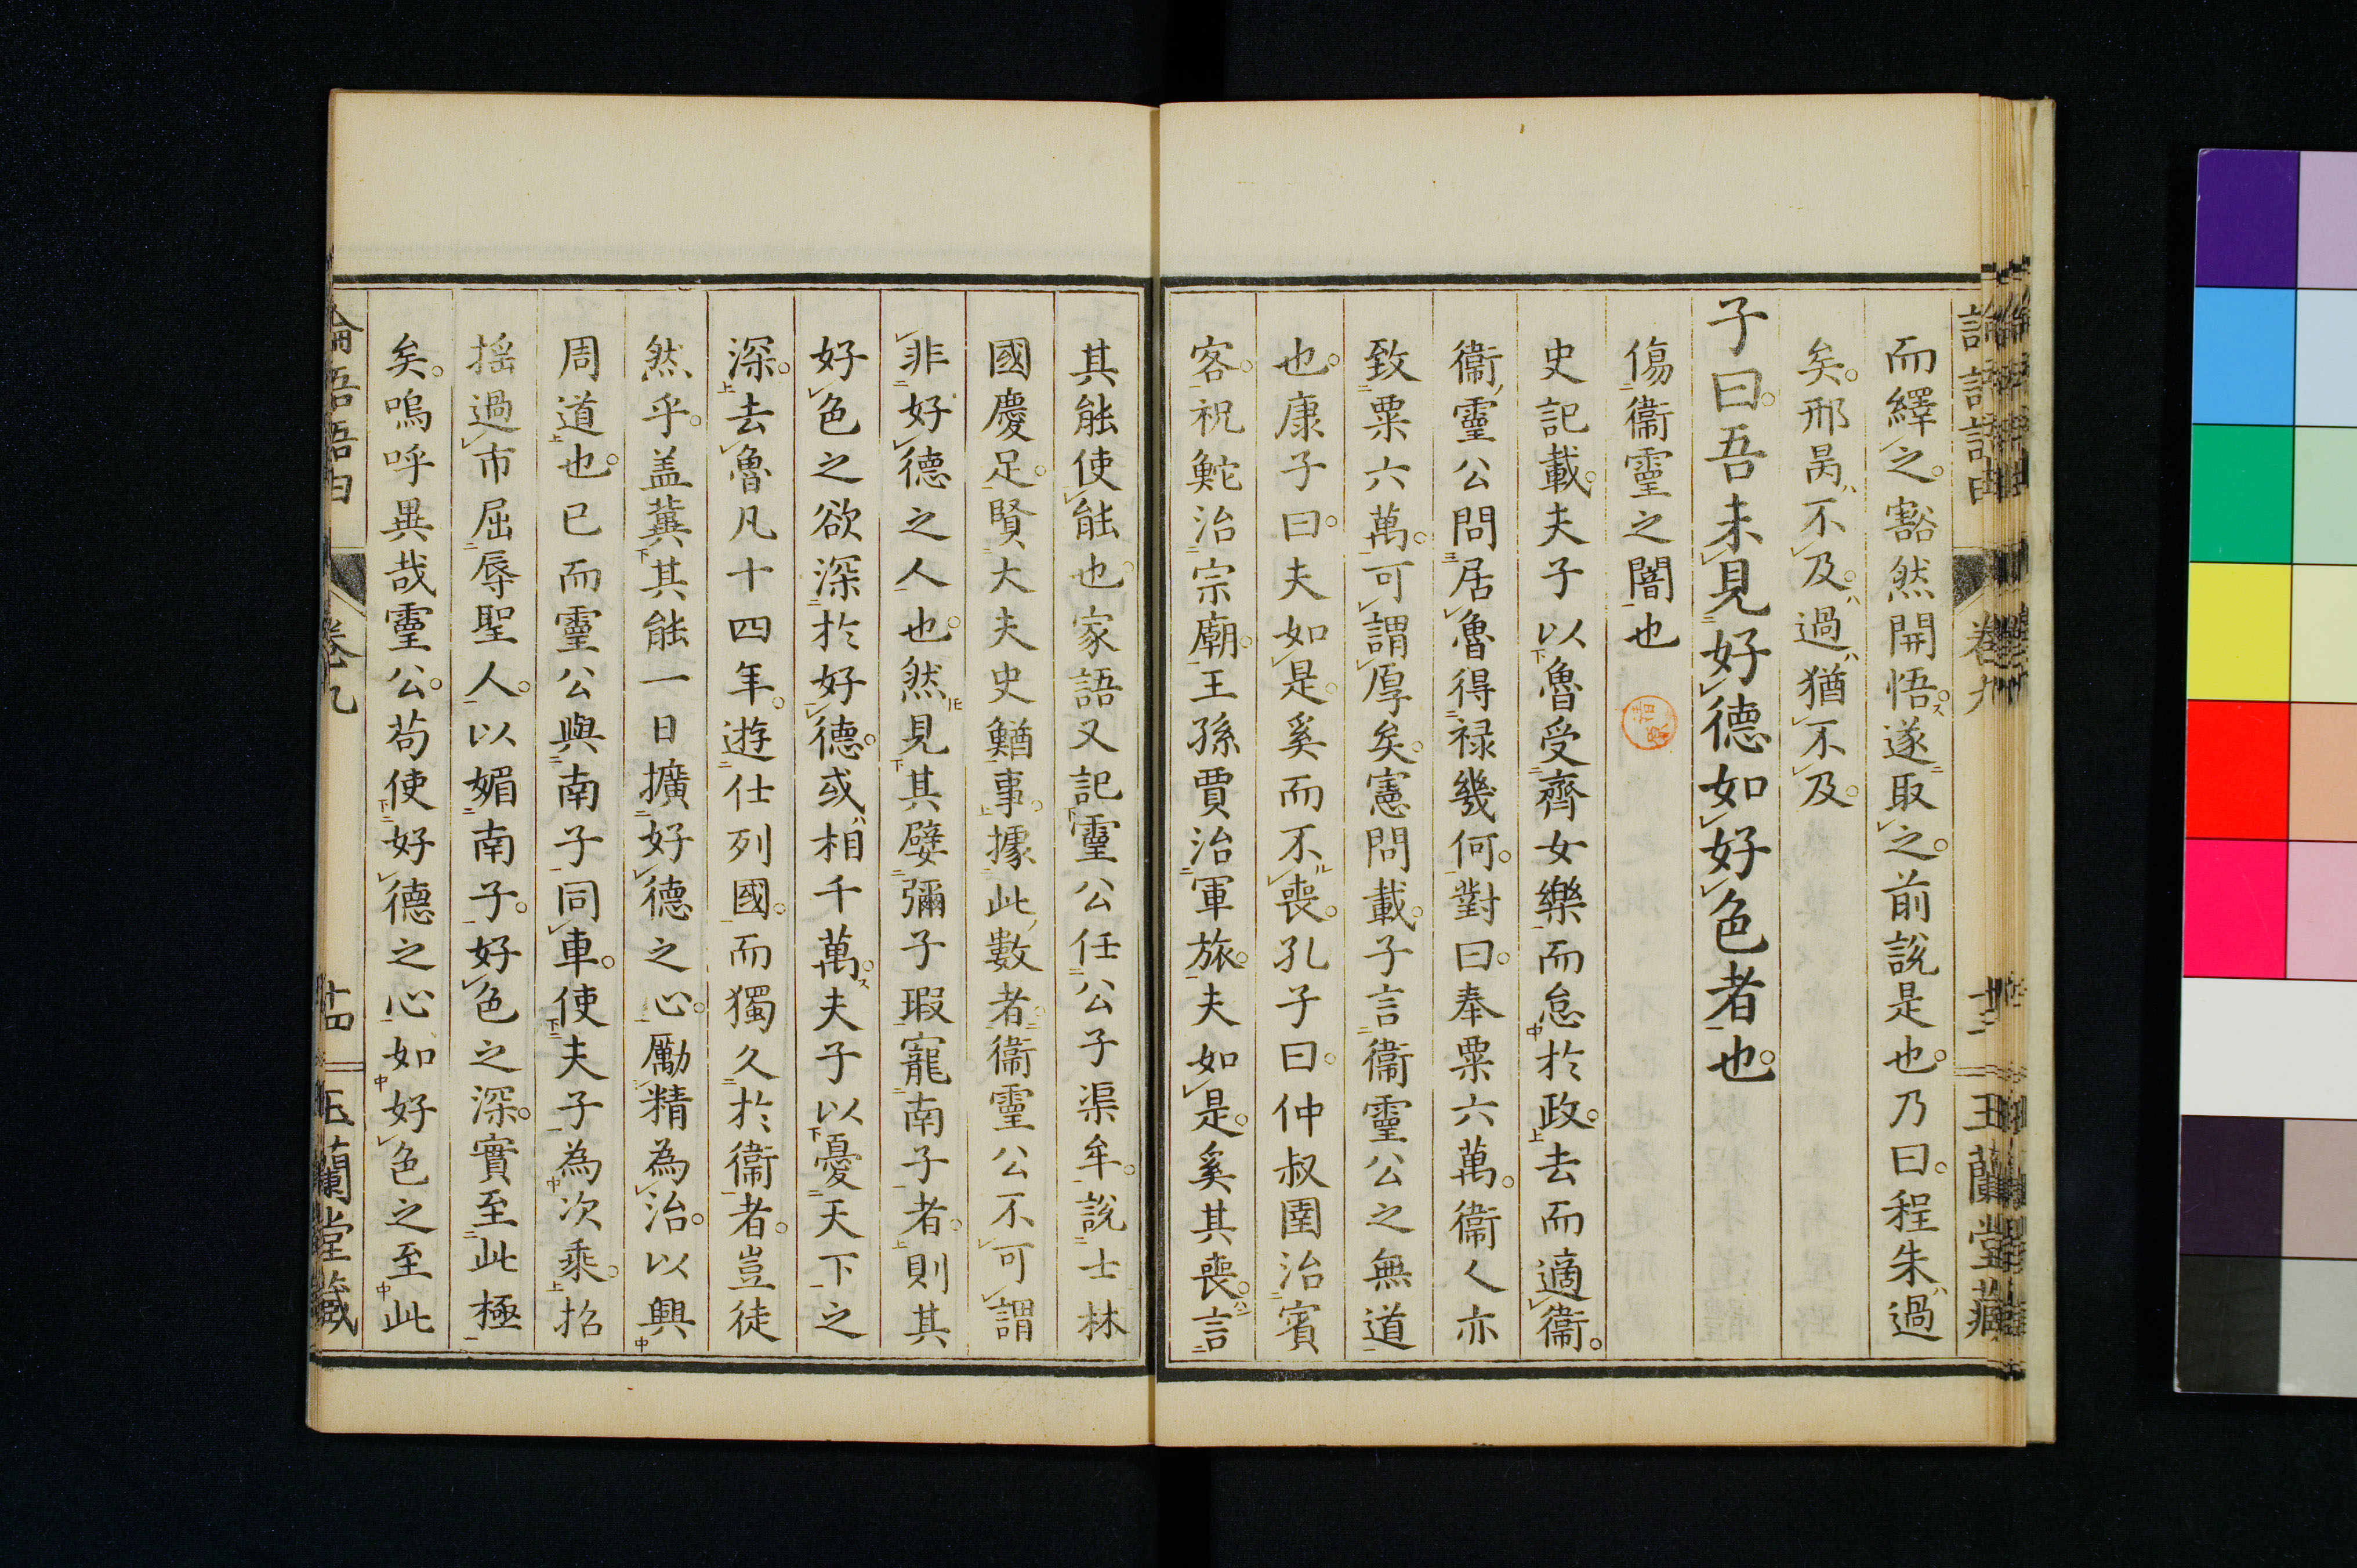 論語語由 卷九 十三 玉蘭堂藏
而繹之。豁然開悟。遂取之。前說是也。乃曰。程朱過
矣。邢昺不及。過猶不及。
子曰。吾未見好德如好色者也。
傷衞靈之闇也
史記載。夫子以魯受齊女樂而怠於政。去而適衞。
衞靈公問居魯得祿幾何。對曰。奉粟六萬。衞人亦
致粟六萬。可謂厚矣。憲問載。子言衞靈公之無道
也。康子曰。夫如是。奚而不喪。孔子曰。仲叔圉治賓
客。祝鮀治宗廟。王孫賈治軍旅。夫如是。奚其喪。言
其能使能也。家語又記靈公任公子渠牟。說士林
國慶足。賢大夫史鰌事。據此數者。衞靈公不可謂
非好德之人也。然見其嬖彌子瑕寵南子者。則其
好色之欲深於好德。或相千萬。夫子以憂天下之
深。去魯凡十四年。遊仕列國。而獨久於衞者。豈徒
然乎。盖冀其能一日擴好德之心。勵精為治。以興
周道也。已而靈公與南子同車。使夫子為次乘。招
搖過市屈辱聖人。以媚南子。好色之深。實至此極
矣。嗚呼異哉靈公。苟使好德之心如好色之至此
論語語由 卷九 十四 玉蘭堂藏